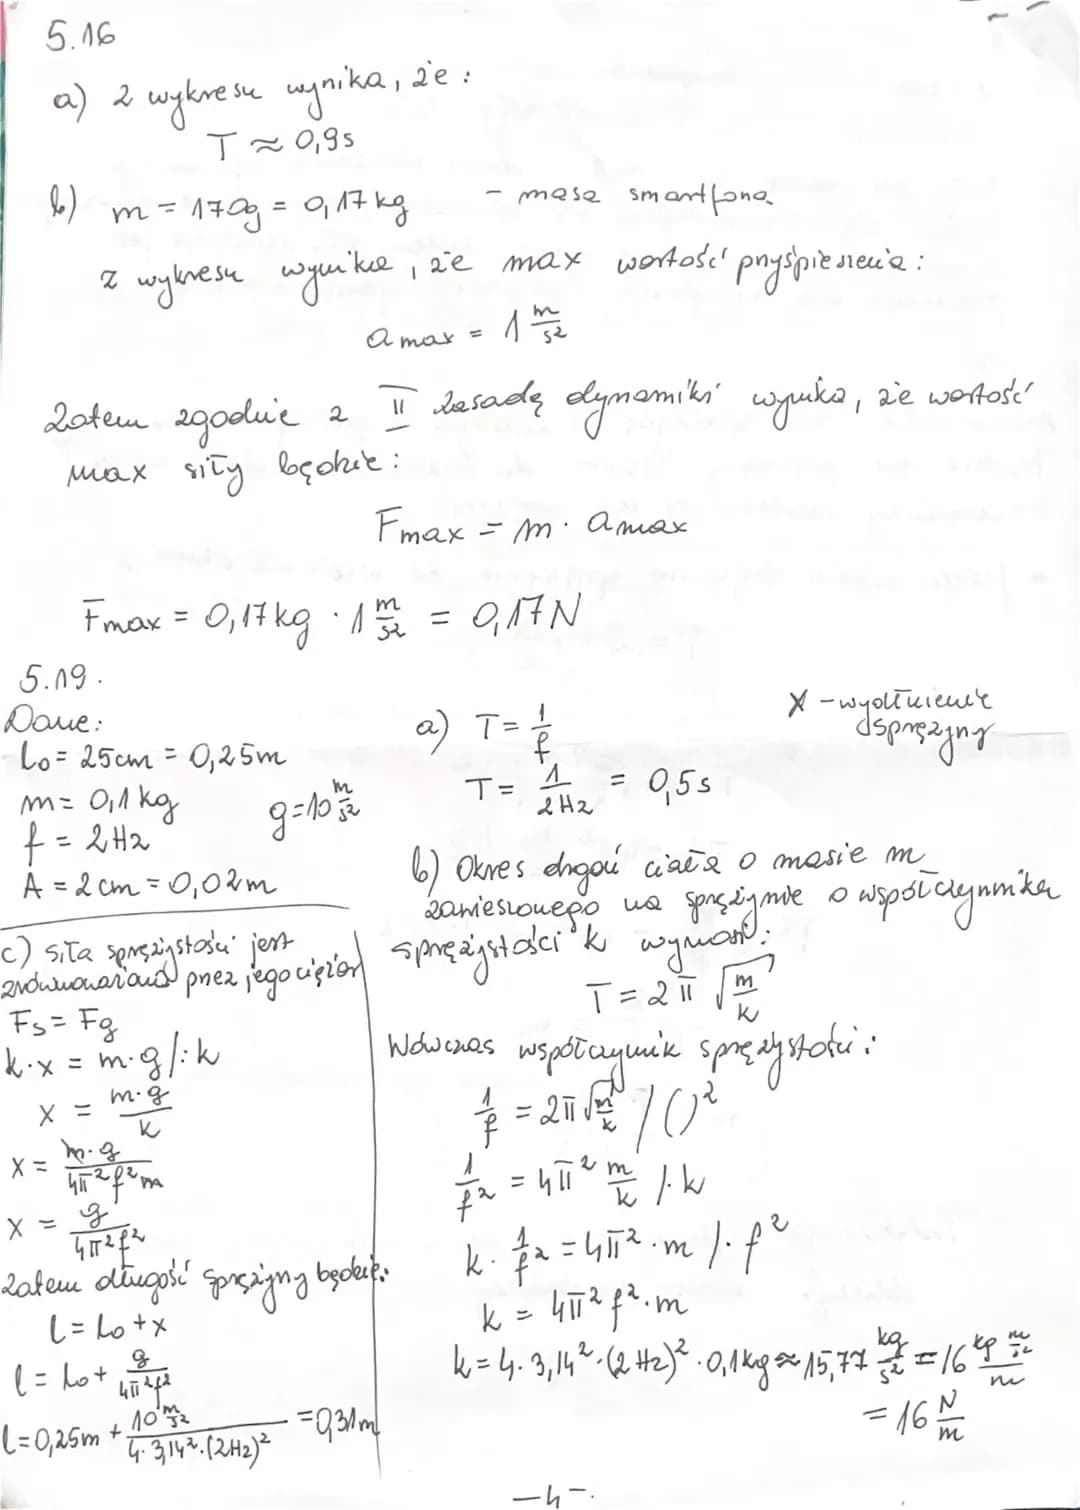 5.16
a) Z wykresu wynika, że:
T ≈ 0,9s
b) m = 170g = 0,17 kg - masa smartfona
z wykresu wynika, że max wartość przyśpieszenia:
a max = 1 m/s²
Zatem zgodnie z II zasadą dynamiki wynika, że wartość
max siły będzie:
Fmax = m · amax
Fmax = 0,17kg · 1 m/s² = 0,17N
5.19.
Dane:
lo = 25cm = 0,25m
m = 0,1 kg g = 10 m/s²
f = 2Hz
A = 2cm = 0,02m
a) T = 1/f
T = 1/2Hz = 0,5s
x - wydłużenie
sprężyny
b) Okres drgań ciała o masie m
zawieszonego na sprężynie o współczynniku
sprężystości k wynosi:
T = 2π √(m/k)
Wówczas współczynnik sprężystości:
1/f = 2π √(m/k) /()²
1/f² = 4π² m/k /·k
k · 1/f² = 4π² · m /· f²
k = 4π² f² · m
k = 4 · 3,14² · (2Hz)² · 0,1kg ≈ 15,77 kg/s² = 16 kg m/s² / m
= 16 N/m
c) siła sprężystości jest
zrównoważona przez jego ciężar
Fs = Fg
k·x = m·g /:k
x = m·g/k
x = m·g/4π²f²m
x = g/4π²f²
Zatem długość sprężyny będzie:
l = lo + x
l = lo + g/4π²f²
l = 0,25m + 10 m/s² / 4·3,14²·(2Hz)² = 0,31m
-4-.